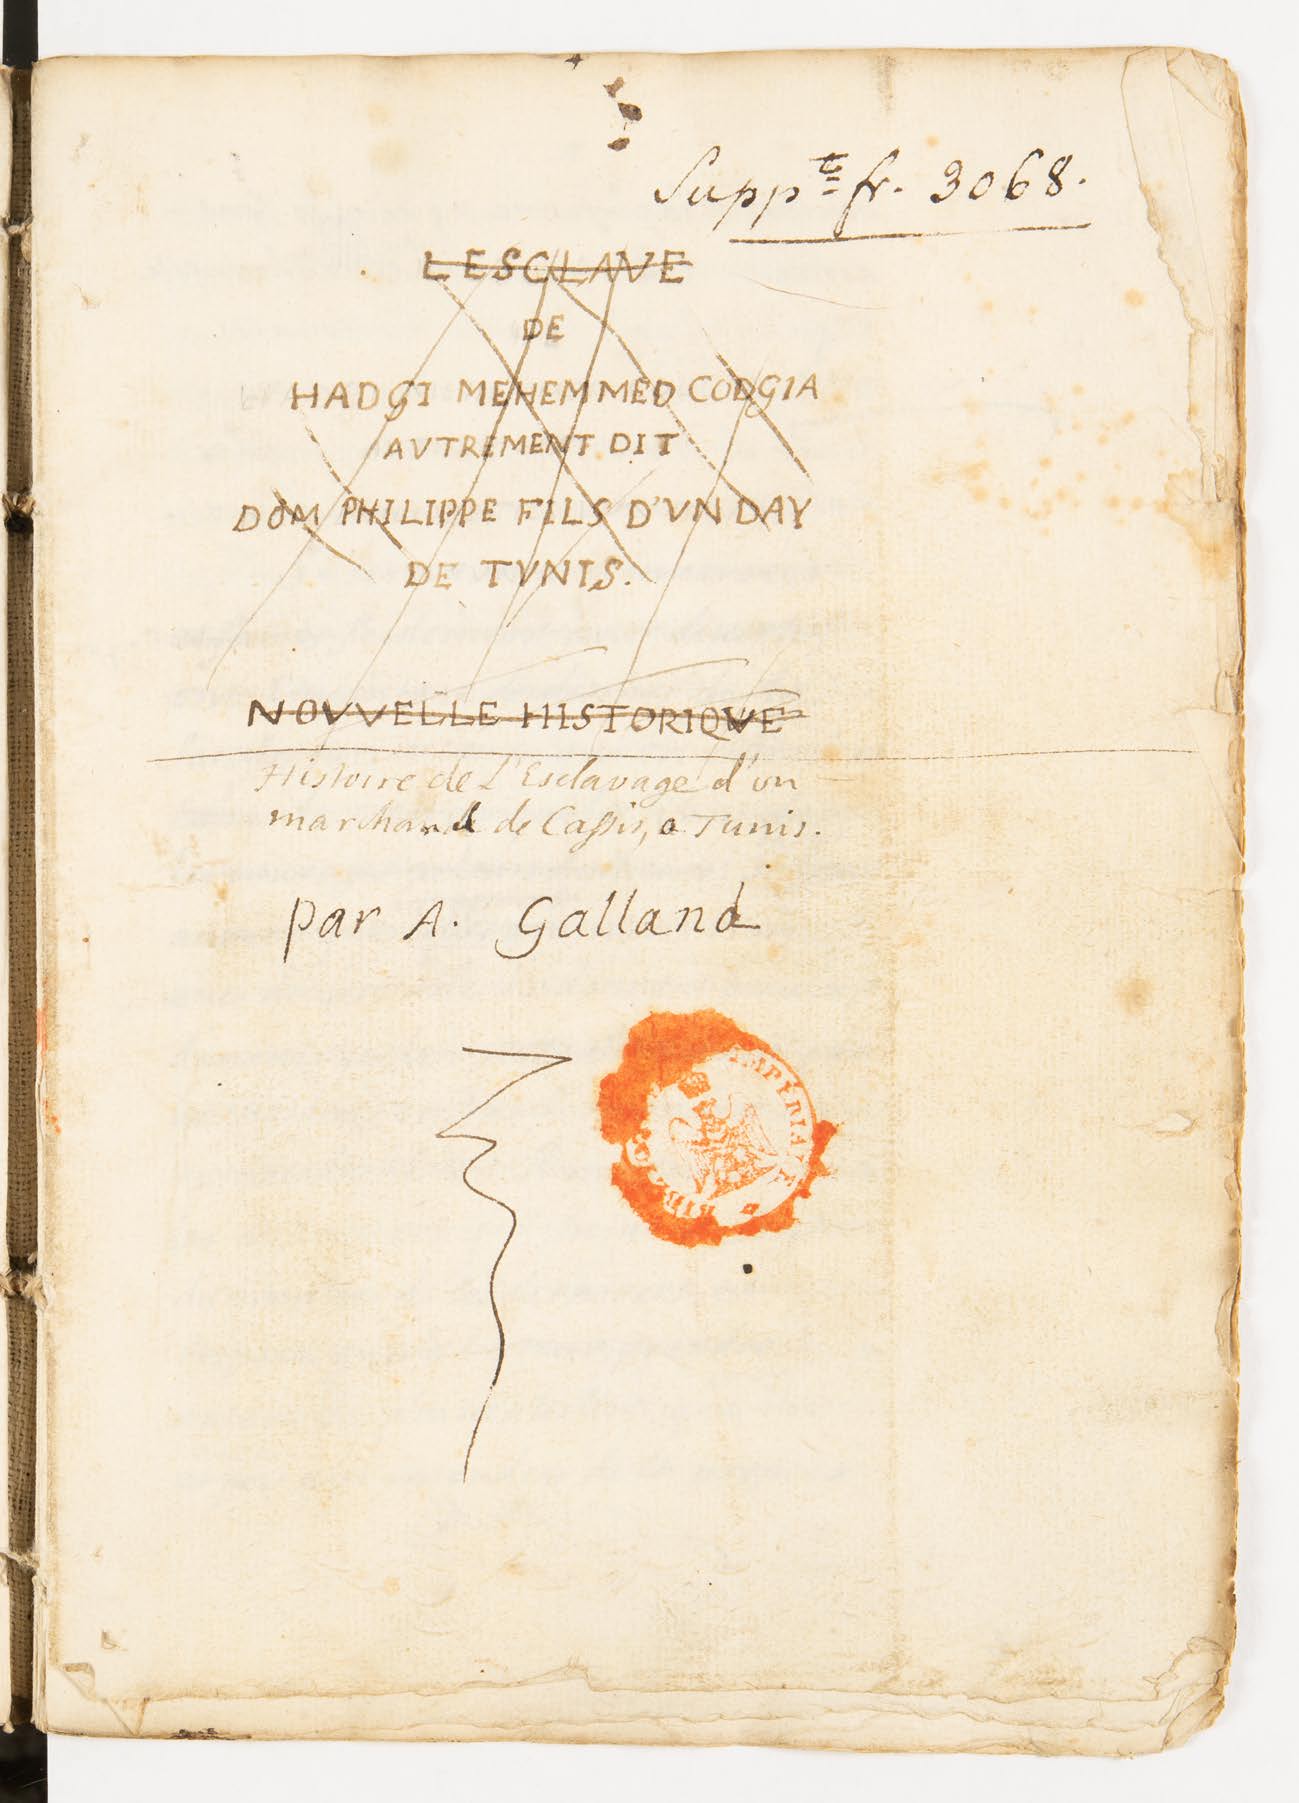 Supp.t fr. 3068.
L'ESCLAVE
DE
HADGI MEHEMMED CODGIA
AVTREMENT DIT
DOM PHILIPPE FILS D'VN DAY
DE TVNIS.
NOVVELLE HISTORIQVE
Histoire de l'Esclavage d'un
marchand de Cassis, a Tunis.
par A. Galland
BIBLIO IMPÉRIALE